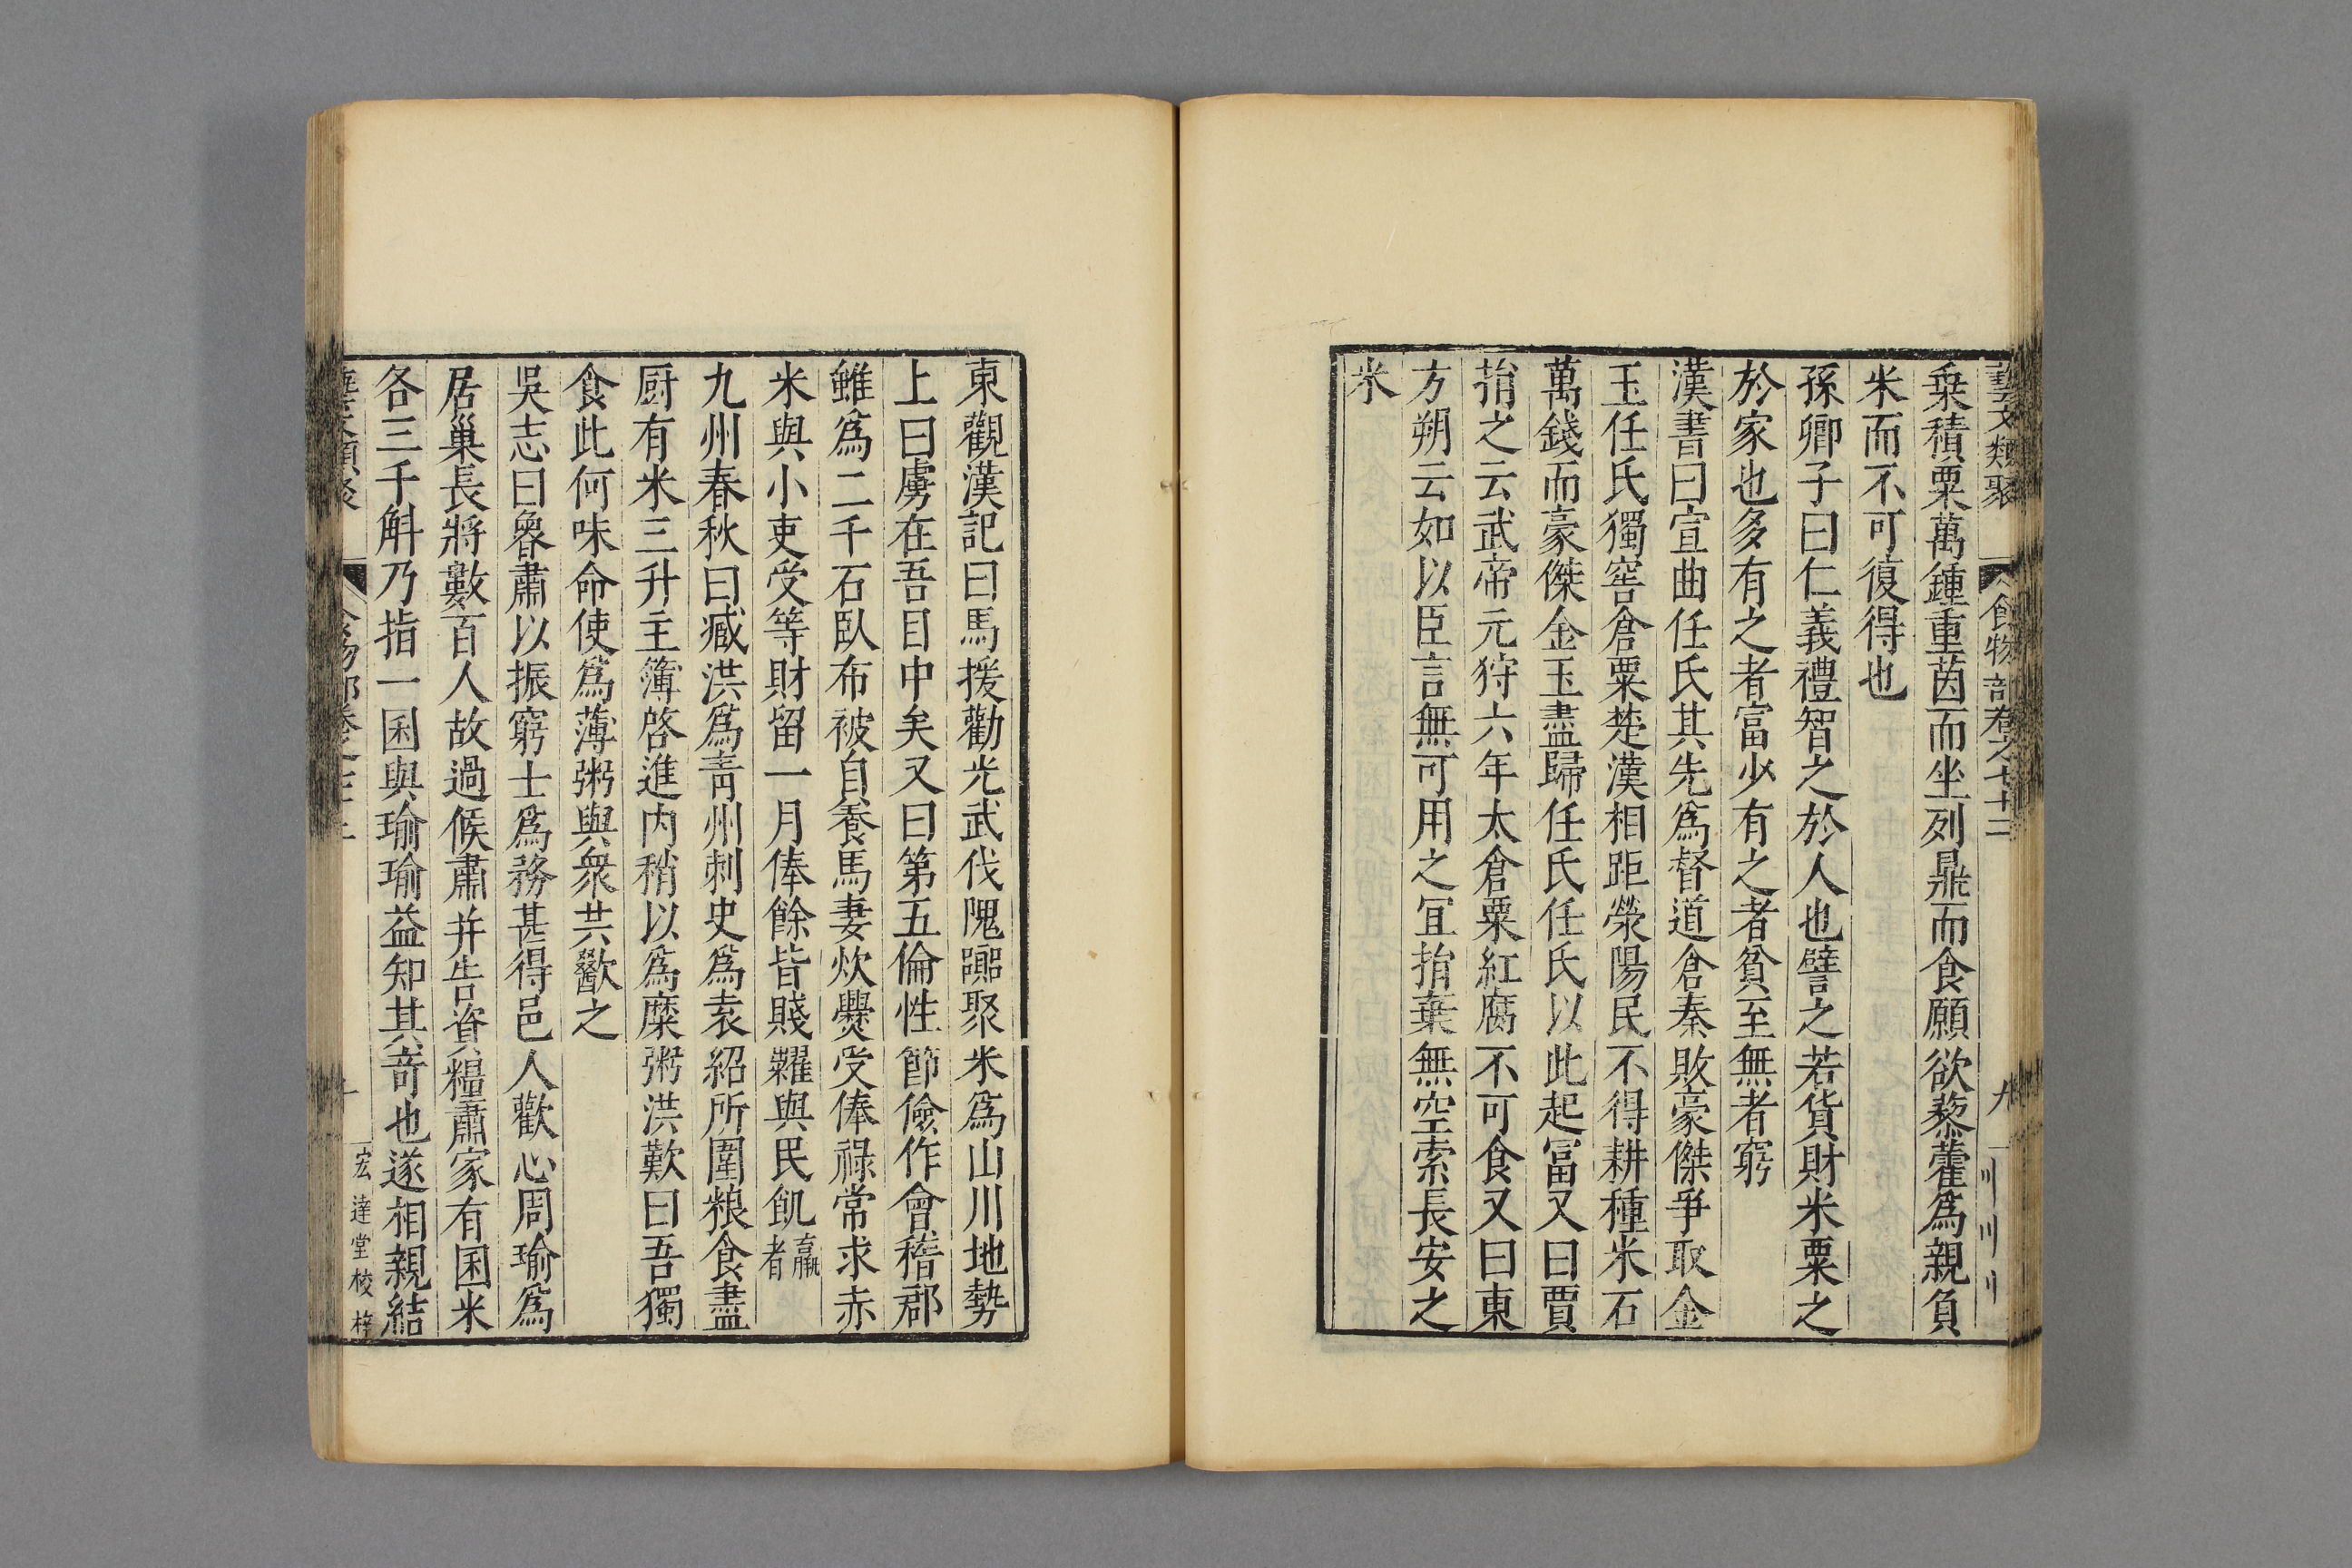 藝文類聚 食物部卷之七十二 九
乗積粟萬鍾重茵而坐列鼎而食願欲藜藿爲親負
米而不可復得也
孫卿子曰仁義禮智之於人也譬之若貨財米粟之
於家也多有之者富少有之者貧至無者窮
漢書曰宣曲任氏其先爲督道倉秦敗豪傑爭取金
玉任氏獨窖倉粟楚漢相距滎陽民不得耕種米石
萬錢而豪傑金玉盡歸任氏任氏以此起冨又曰賈
捐之云武帝元狩六年太倉粟紅腐不可食又曰東
方朔云如以臣言無可用之冝捐棄無空索長安之
米
東觀漢記曰馬援勸光武伐隗囂聚米爲山川地勢
上曰虜在吾目中矣又曰第五倫性節儉作會稽郡
雖爲二千石臥布被自養馬妻炊爨受俸祿常求赤
米與小吏受等財留一月俸餘皆賤糶與民飢羸者
九州春秋曰臧洪爲青州刺史爲袁紹所圍粮食盡
厨有米三升主簿啓進内稍以爲糜粥洪歎曰吾獨
食此何味命使爲薄粥與衆共歠之
吳志曰魯肅以振窮士爲務甚得邑人歡心周瑜爲
居巢長將數百人故過候肅并告資糧肅家有囷米
各三千斛乃指一囷與瑜瑜益知其奇也遂相親結
宏達堂校梓